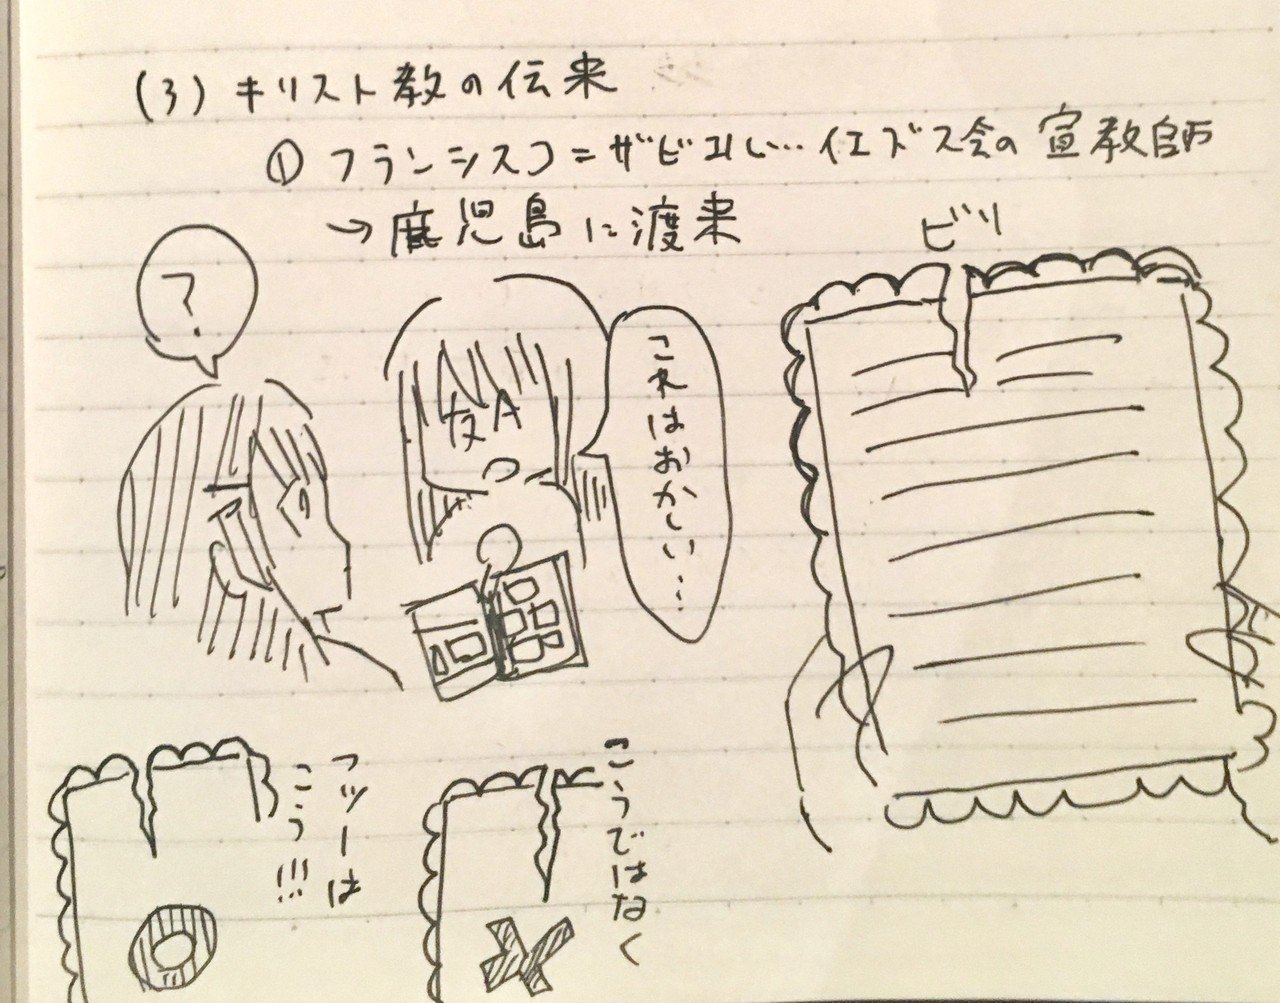 (3) キリスト教の伝来
① フランシスコ=ザビエル… イエズス会の宣教師
→ 鹿児島に渡来
?
友A
これはおかしい…
ビリ
こうではなく
フツーは
こう!!!